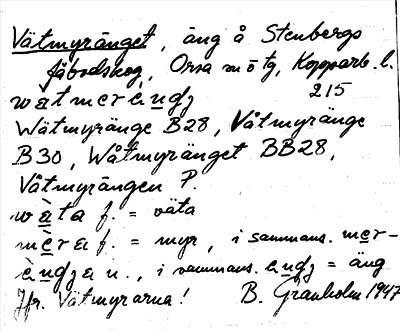 Vätmyränget, äng å Stenbergs
fäbodskog, Orsa m o tg, Kopparb. l.
215
Wätmyränge B28, Våtmyränge
B30, Wåtmyränget BB28,
Våtmyrängen P.
f. = väta
f. = myr, i sammans.
n., i sammans. = äng
Jfr. Vätmyrarna! B. Granholm 1947